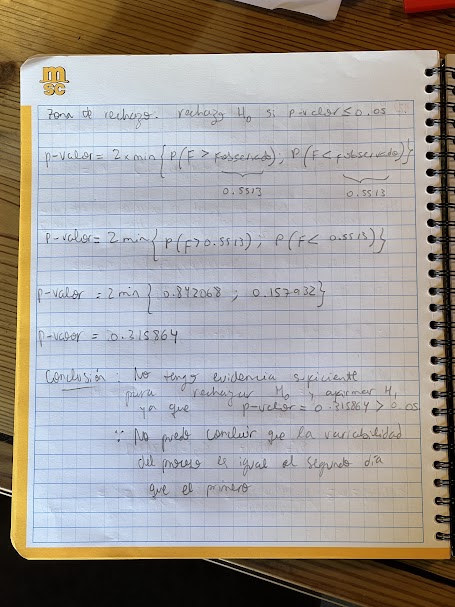 m
sc
Zona de rechazo. rechazo H₀ si p-valor ≤ 0.05
p-valor = 2 x min { P(F > fobservado) ; P(F < fobservado) }
0.5513 0.5513
p-valor = 2 min { P(F > 0.5513) ; P(F < 0.5513) }
p-valor = 2 min { 0.842068 ; 0.157932 }
p-valor = 0.315864
Conclusión : No tengo evidencia suficiente
para rechazar H₀ y afirmar H₁
ya que p-valor = 0.315864 > 0.05
∵ No puedo concluir que la variabilidad
del proceso es igual el segundo día
que el primero